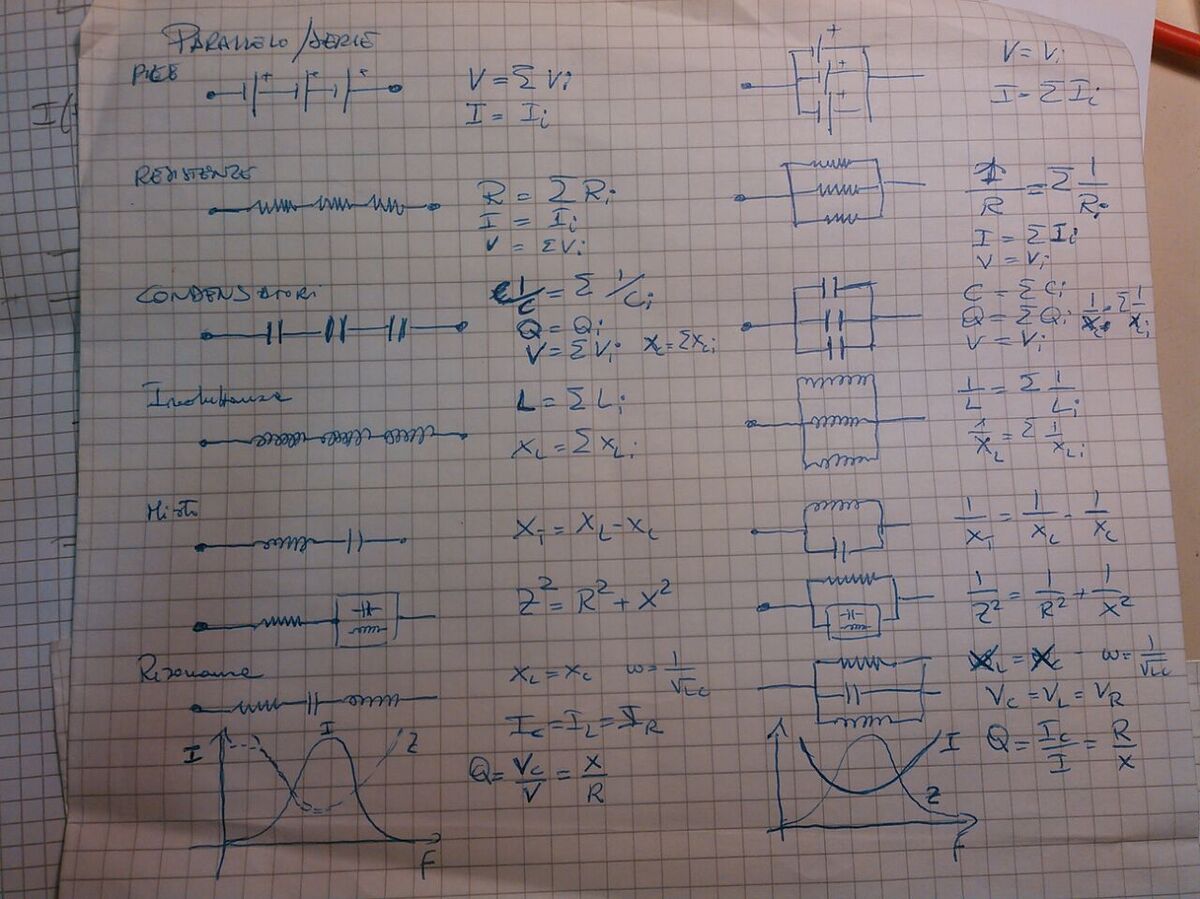 PARALLELO/SERIE
PILE
+ + +
V = Σ Vi
I = Ii
+ + +
V = Vi
I = Σ Ii
I(
RESISTENZE
R = Σ Ri
I = Ii
V = ΣVi
1/R = Σ 1/Ri
I = Σ Ii
V = Vi
CONDENSATORI
1/C = Σ 1/Ci
Q = Qi
V = Σ Vi Xc = ΣXci
C = Σ Ci
Q = Σ Qi 1/Xc = Σ 1/Xi
V = Vi
Induttanze
L = Σ Li
XL = Σ XLi
1/L = Σ 1/Li
1/XL = Σ 1/XLi
Misto
XT = XL - XC
1/XT = 1/XL - 1/XC
Z² = R² + X²
1/Z² = 1/R² + 1/X²
Risonanza
XL = XC ω = 1/√LC
IC = IL = IR
Q = VC/V = X/R
XL = XC ω = 1/√LC
VC = VL = VR
Q = IC/I = R/X
I I Z F
I Z F